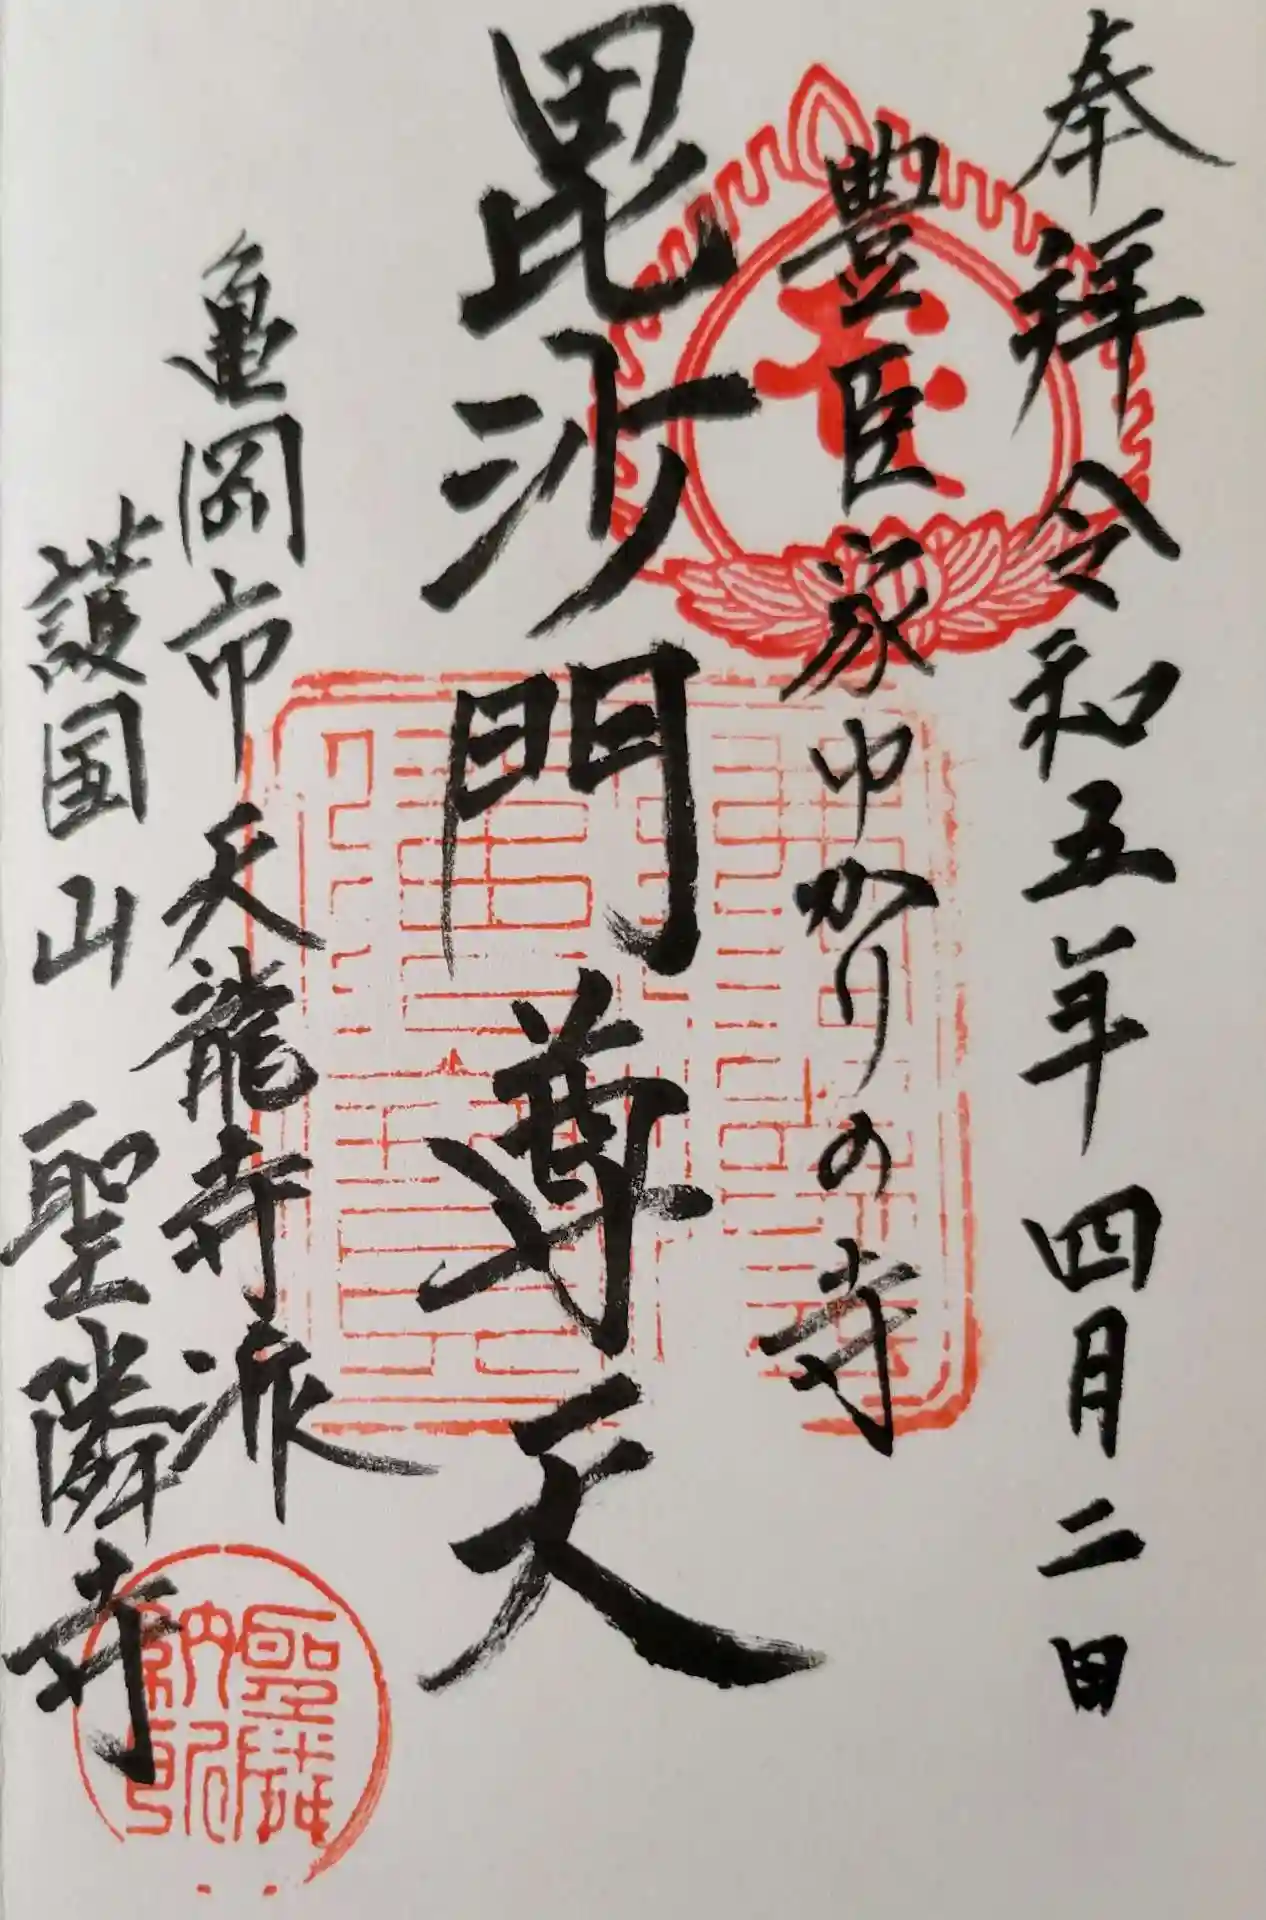 奉拝 令和五年 四月二日
豊臣家ゆかりの寺
毘沙門尊天
亀岡市 天龍寺派
護国山 聖隣寺